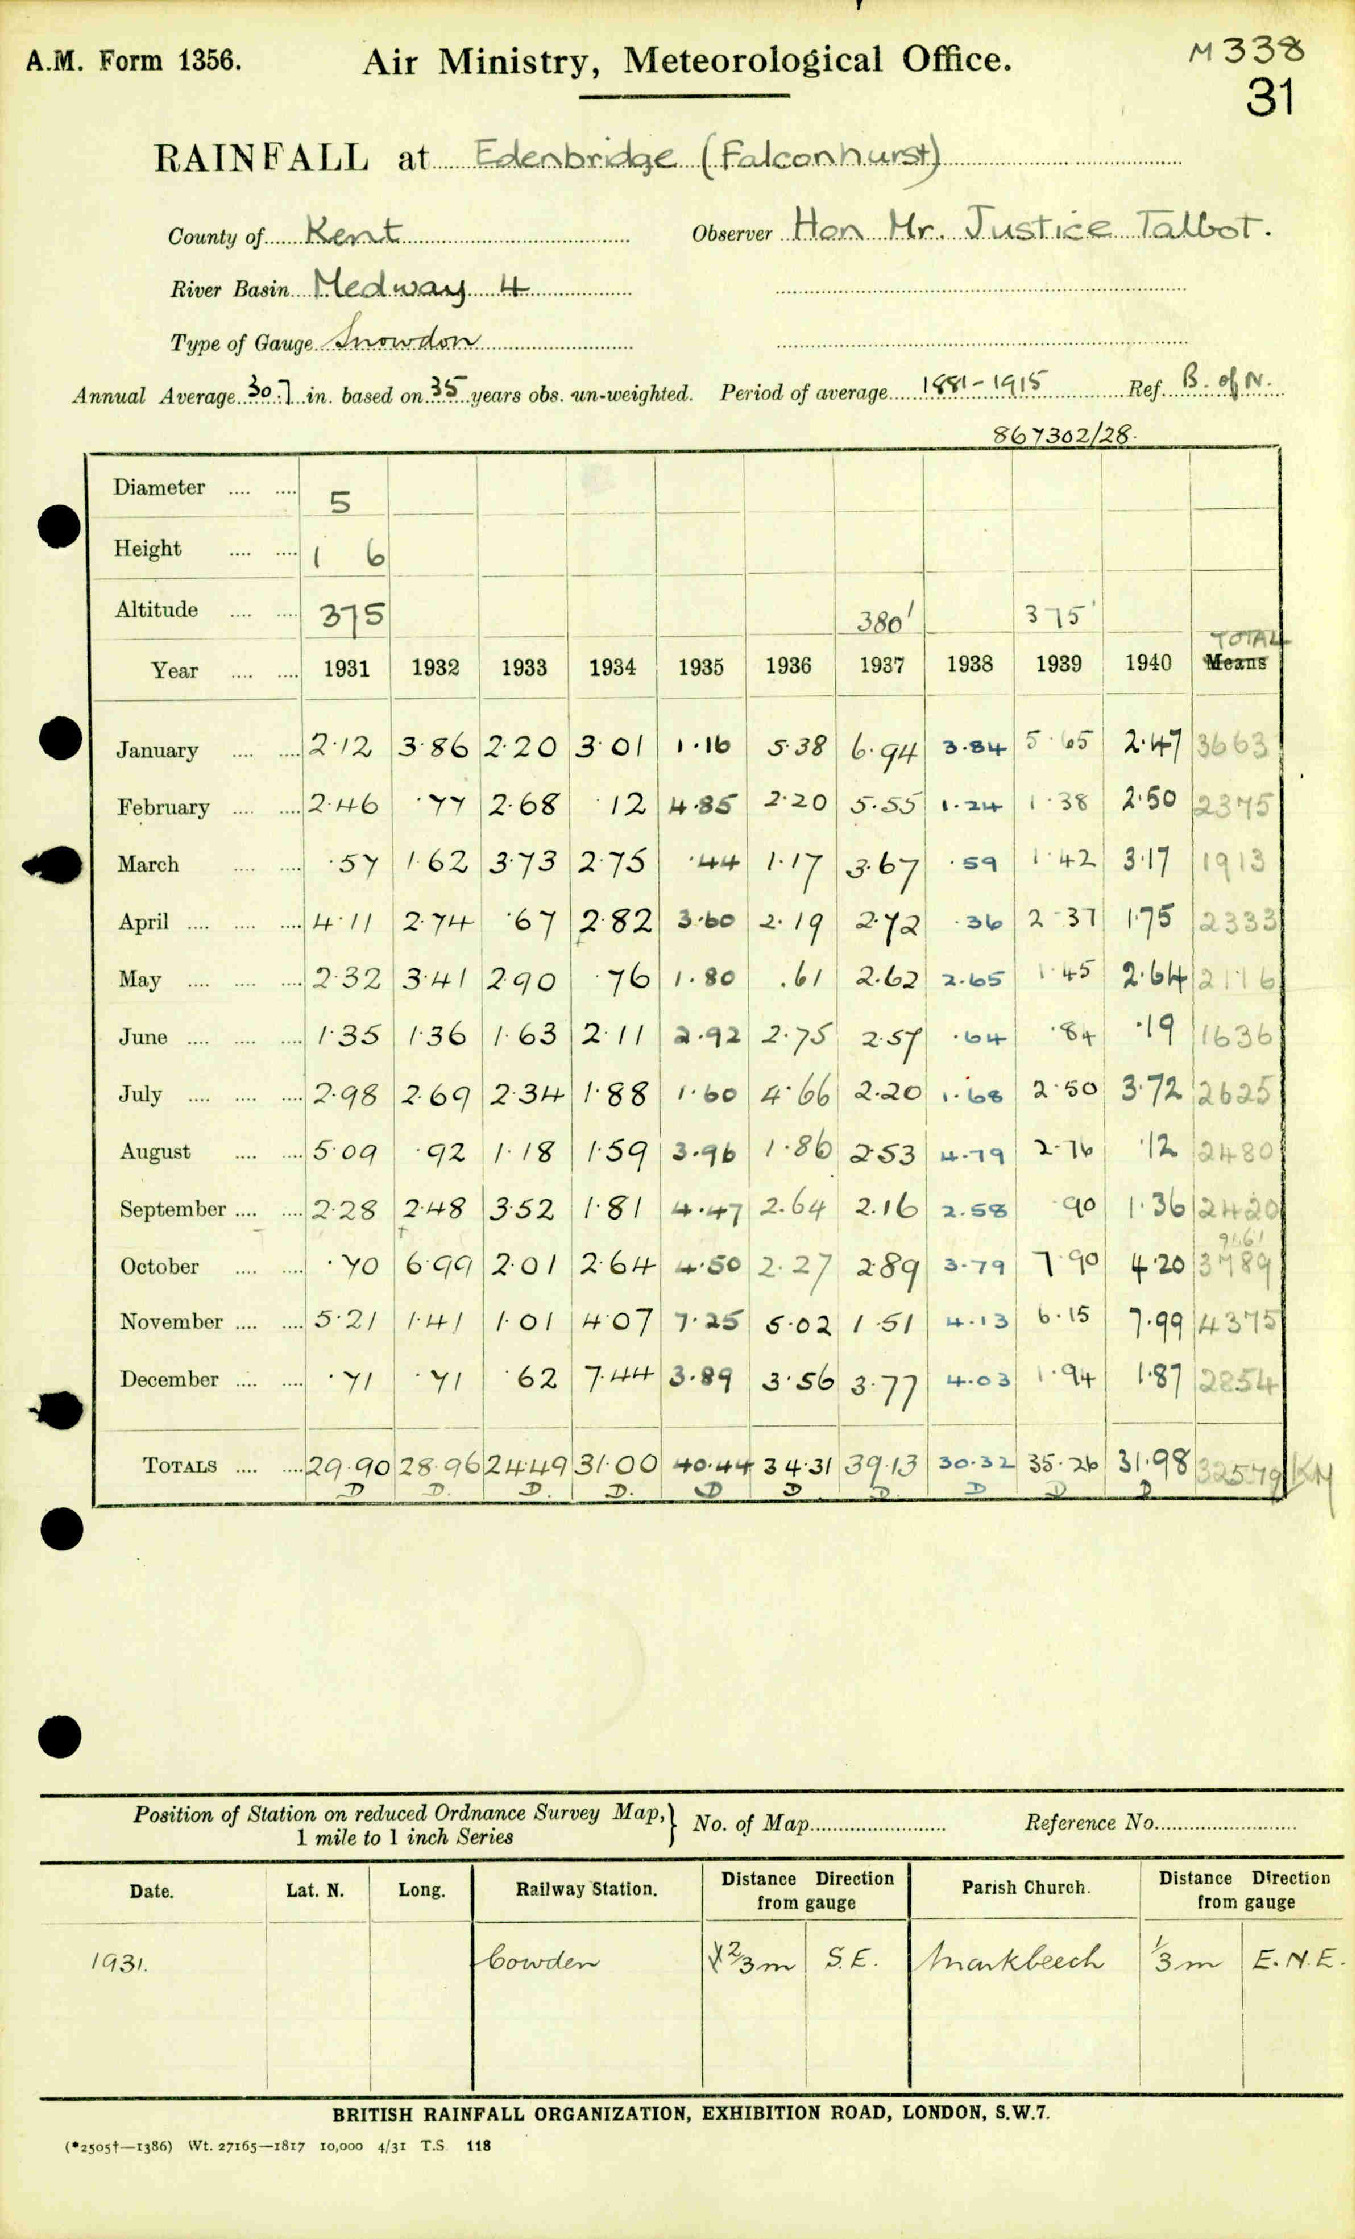 A.M. Form 1356. Air Ministry, Meteorological Office. M 338
31
RAINFALL at Edenbridge (Falconhurst)
County of Kent Observer Hon Mr. Justice Talbot.
River Basin Medway 4
Type of Gauge Snowdon
Annual Average 30.7 in. based on 35 years obs. un-weighted. Period of average 1881-1915 Ref. B. of N.
867302/28.
Diameter .... .... 5
Height .... .... 1 6
Altitude .... .... 375 380' 375'
TOTAL
Year .... .... 1931 1932 1933 1934 1935 1936 1937 1938 1939 1940 Means
January .... .... 2.12 3.86 2.20 3.01 1.16 5.38 6.94 3.84 5.65 2.47 3663
February .... .... 2.46 .77 2.68 .12 4.85 2.20 5.55 1.24 1.38 2.50 2375
March .... .... .57 1.62 3.73 2.75 .44 1.17 3.67 .59 1.42 3.17 1913
April .... .... .... 4.11 2.74 .67 2.82 3.60 2.19 2.72 .36 2.37 1.75 2333
May .... .... .... 2.32 3.41 2.90 .76 1.80 .61 2.62 2.65 1.45 2.64 2116
June .... .... .... 1.35 1.36 1.63 2.11 2.92 2.75 2.57 .64 .84 .19 1636
July .... .... .... 2.98 2.69 2.34 1.88 1.60 4.66 2.20 1.68 2.50 3.72 2625
August .... .... 5.09 .92 1.18 1.59 3.96 1.86 2.53 4.79 2.76 .12 2480
September .... .... 2.28 2.48 3.52 1.81 4.47 2.64 2.16 2.58 .90 1.36 2420
9161
October .... .... .70 6.99 2.01 2.64 4.50 2.27 2.89 3.79 7.90 4.20 3789
November .... .... 5.21 1.41 1.01 4.07 7.25 5.02 1.51 4.13 6.15 7.99 4375
December .... .... .71 .71 .62 7.44 3.89 3.56 3.77 4.03 1.94 1.87 2854
TOTALS .... .... 29.90 28.96 24.49 31.00 40.44 34.31 39.13 30.32 35.26 31.98 32579 KM
D D. D. D. D D D. D D D
Position of Station on reduced Ordnance Survey Map, } No. of Map Reference No.
1 mile to 1 inch Series
Date. Lat. N. Long. Railway Station. Distance Direction from gauge Parish Church. Distance Direction from gauge
1931. Cowden 2/3 m S.E. Markbeech 1/3 m E.N.E.
BRITISH RAINFALL ORGANIZATION, EXHIBITION ROAD, LONDON, S.W.7.
(*2505†—1386) Wt. 27165—1817 10,000 4/31 T.S. 118